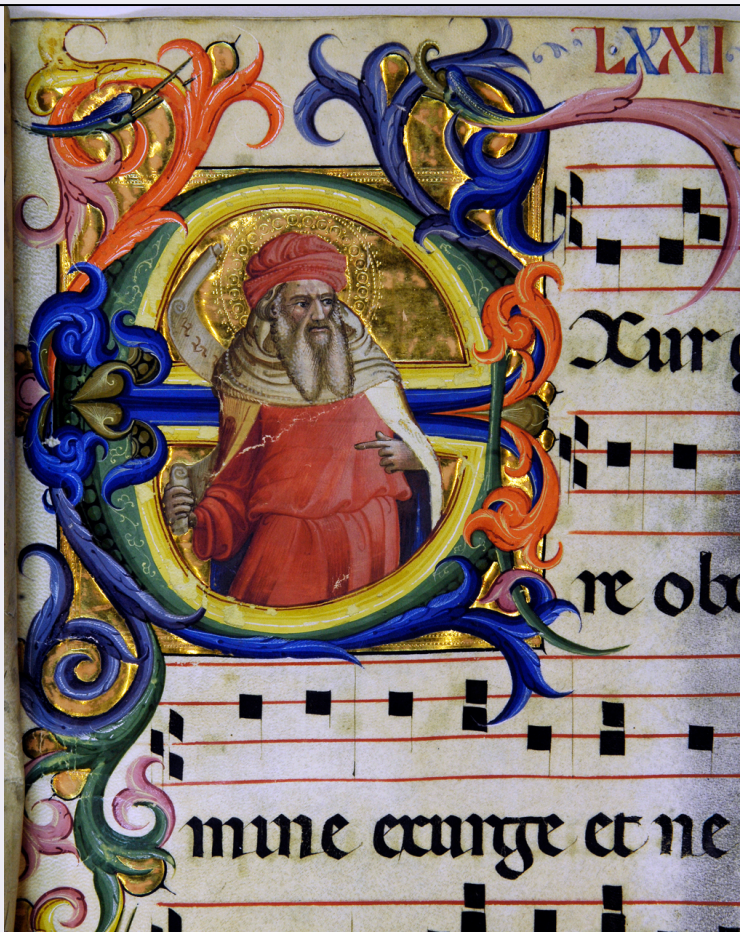 LXXII
Exurg
re obd
mine exurge et ne